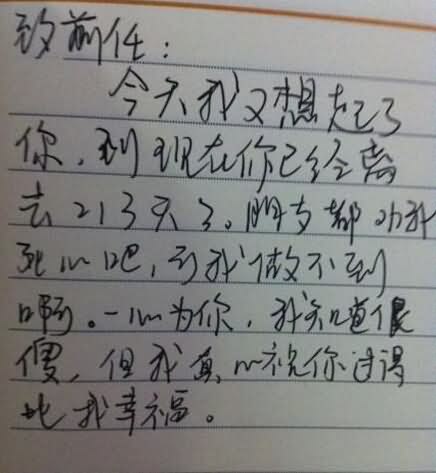 致前任：
今天我又想起了
你，到现在你已经离
去213天了。朋友都劝我
死心吧，可我做不到
啊。一心为你，我知道很
傻，但我真心祝你过得
比我幸福。